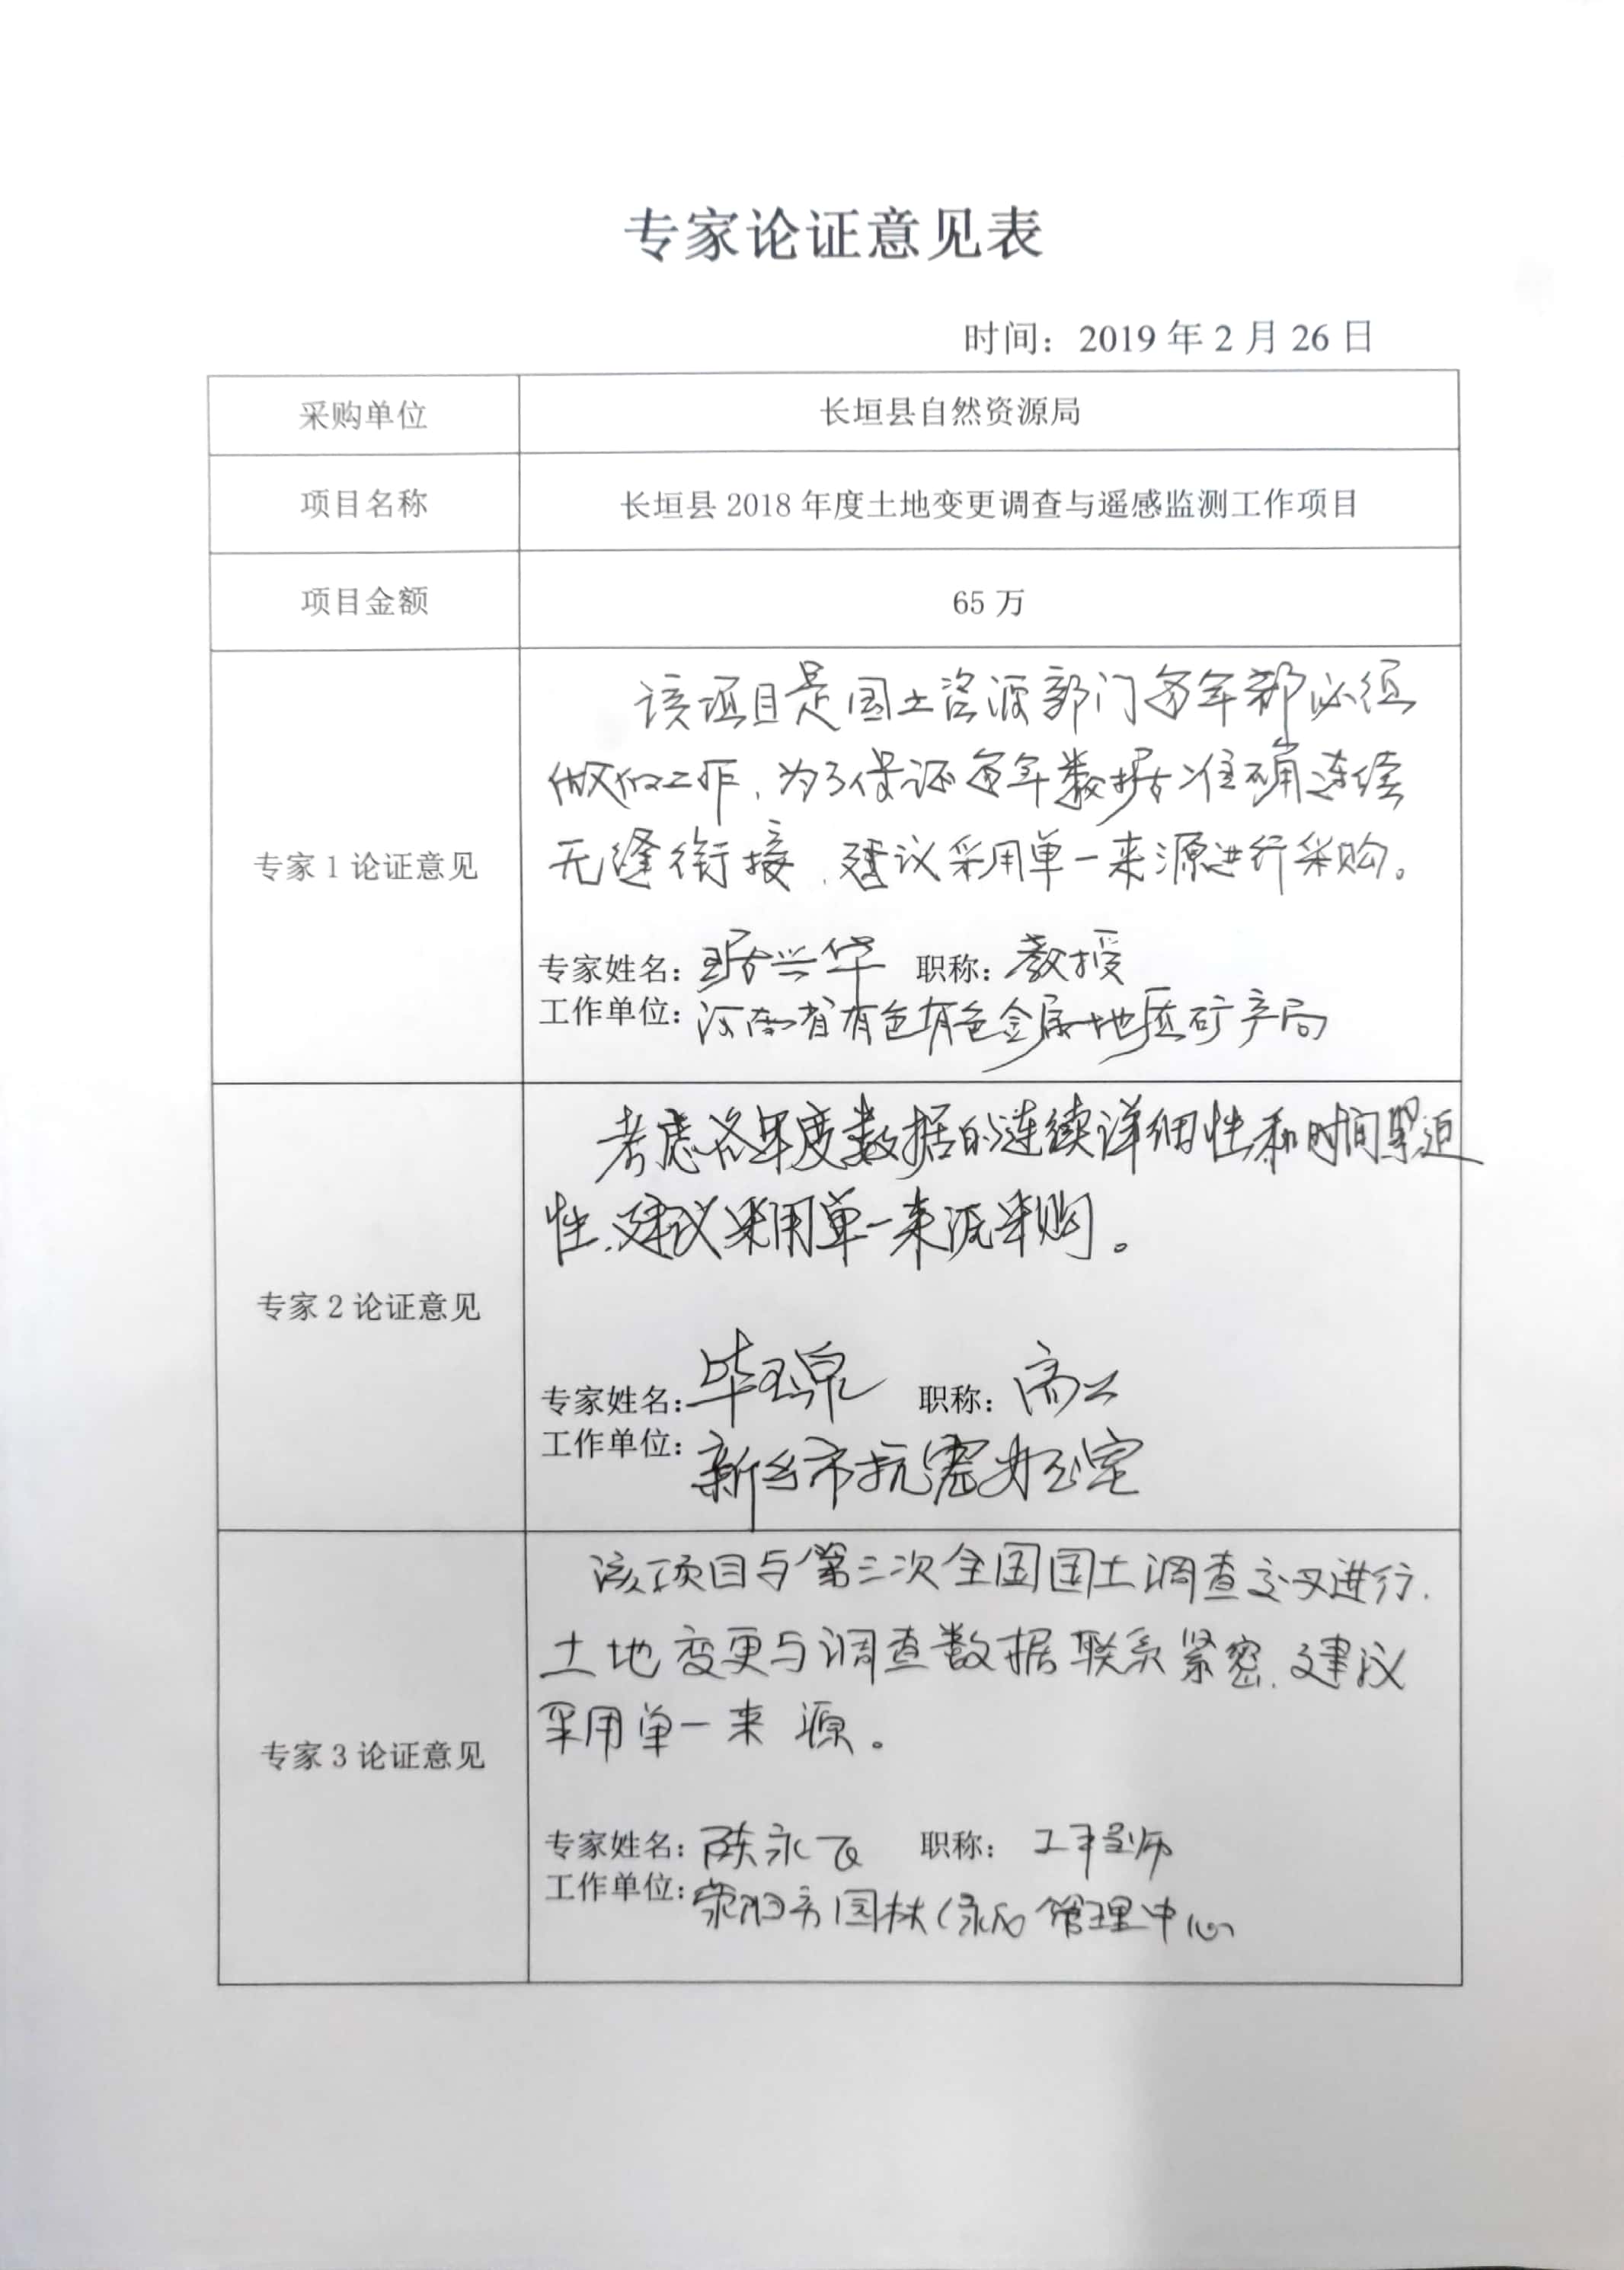 专家论证意见表
时间：2019年2月26日
采购单位 长垣县自然资源局
项目名称 长垣县2018年度土地变更调查与遥感监测工作项目
项目金额 65万
专家1论证意见
该项目是国土资源部门每年都必须
做的工作，为了保证每年数据准确连续
无缝衔接，建议采用单一来源进行采购。
专家姓名：琚兴华 职称：教授
工作单位：河南省有色有色金属地质矿产局
专家2论证意见
考虑各年度数据的连续详细性和时间紧迫
性，建议采用单一来源采购。
专家姓名：毕玉泉 职称：高工
工作单位：新乡市抗震办公室
专家3论证意见
该项目与第三次全国国土调查交叉进行，
土地变更与调查数据联系紧密，建议
采用单一来源。
专家姓名：陈永飞 职称：工程师
工作单位：荥阳市园林绿化管理中心